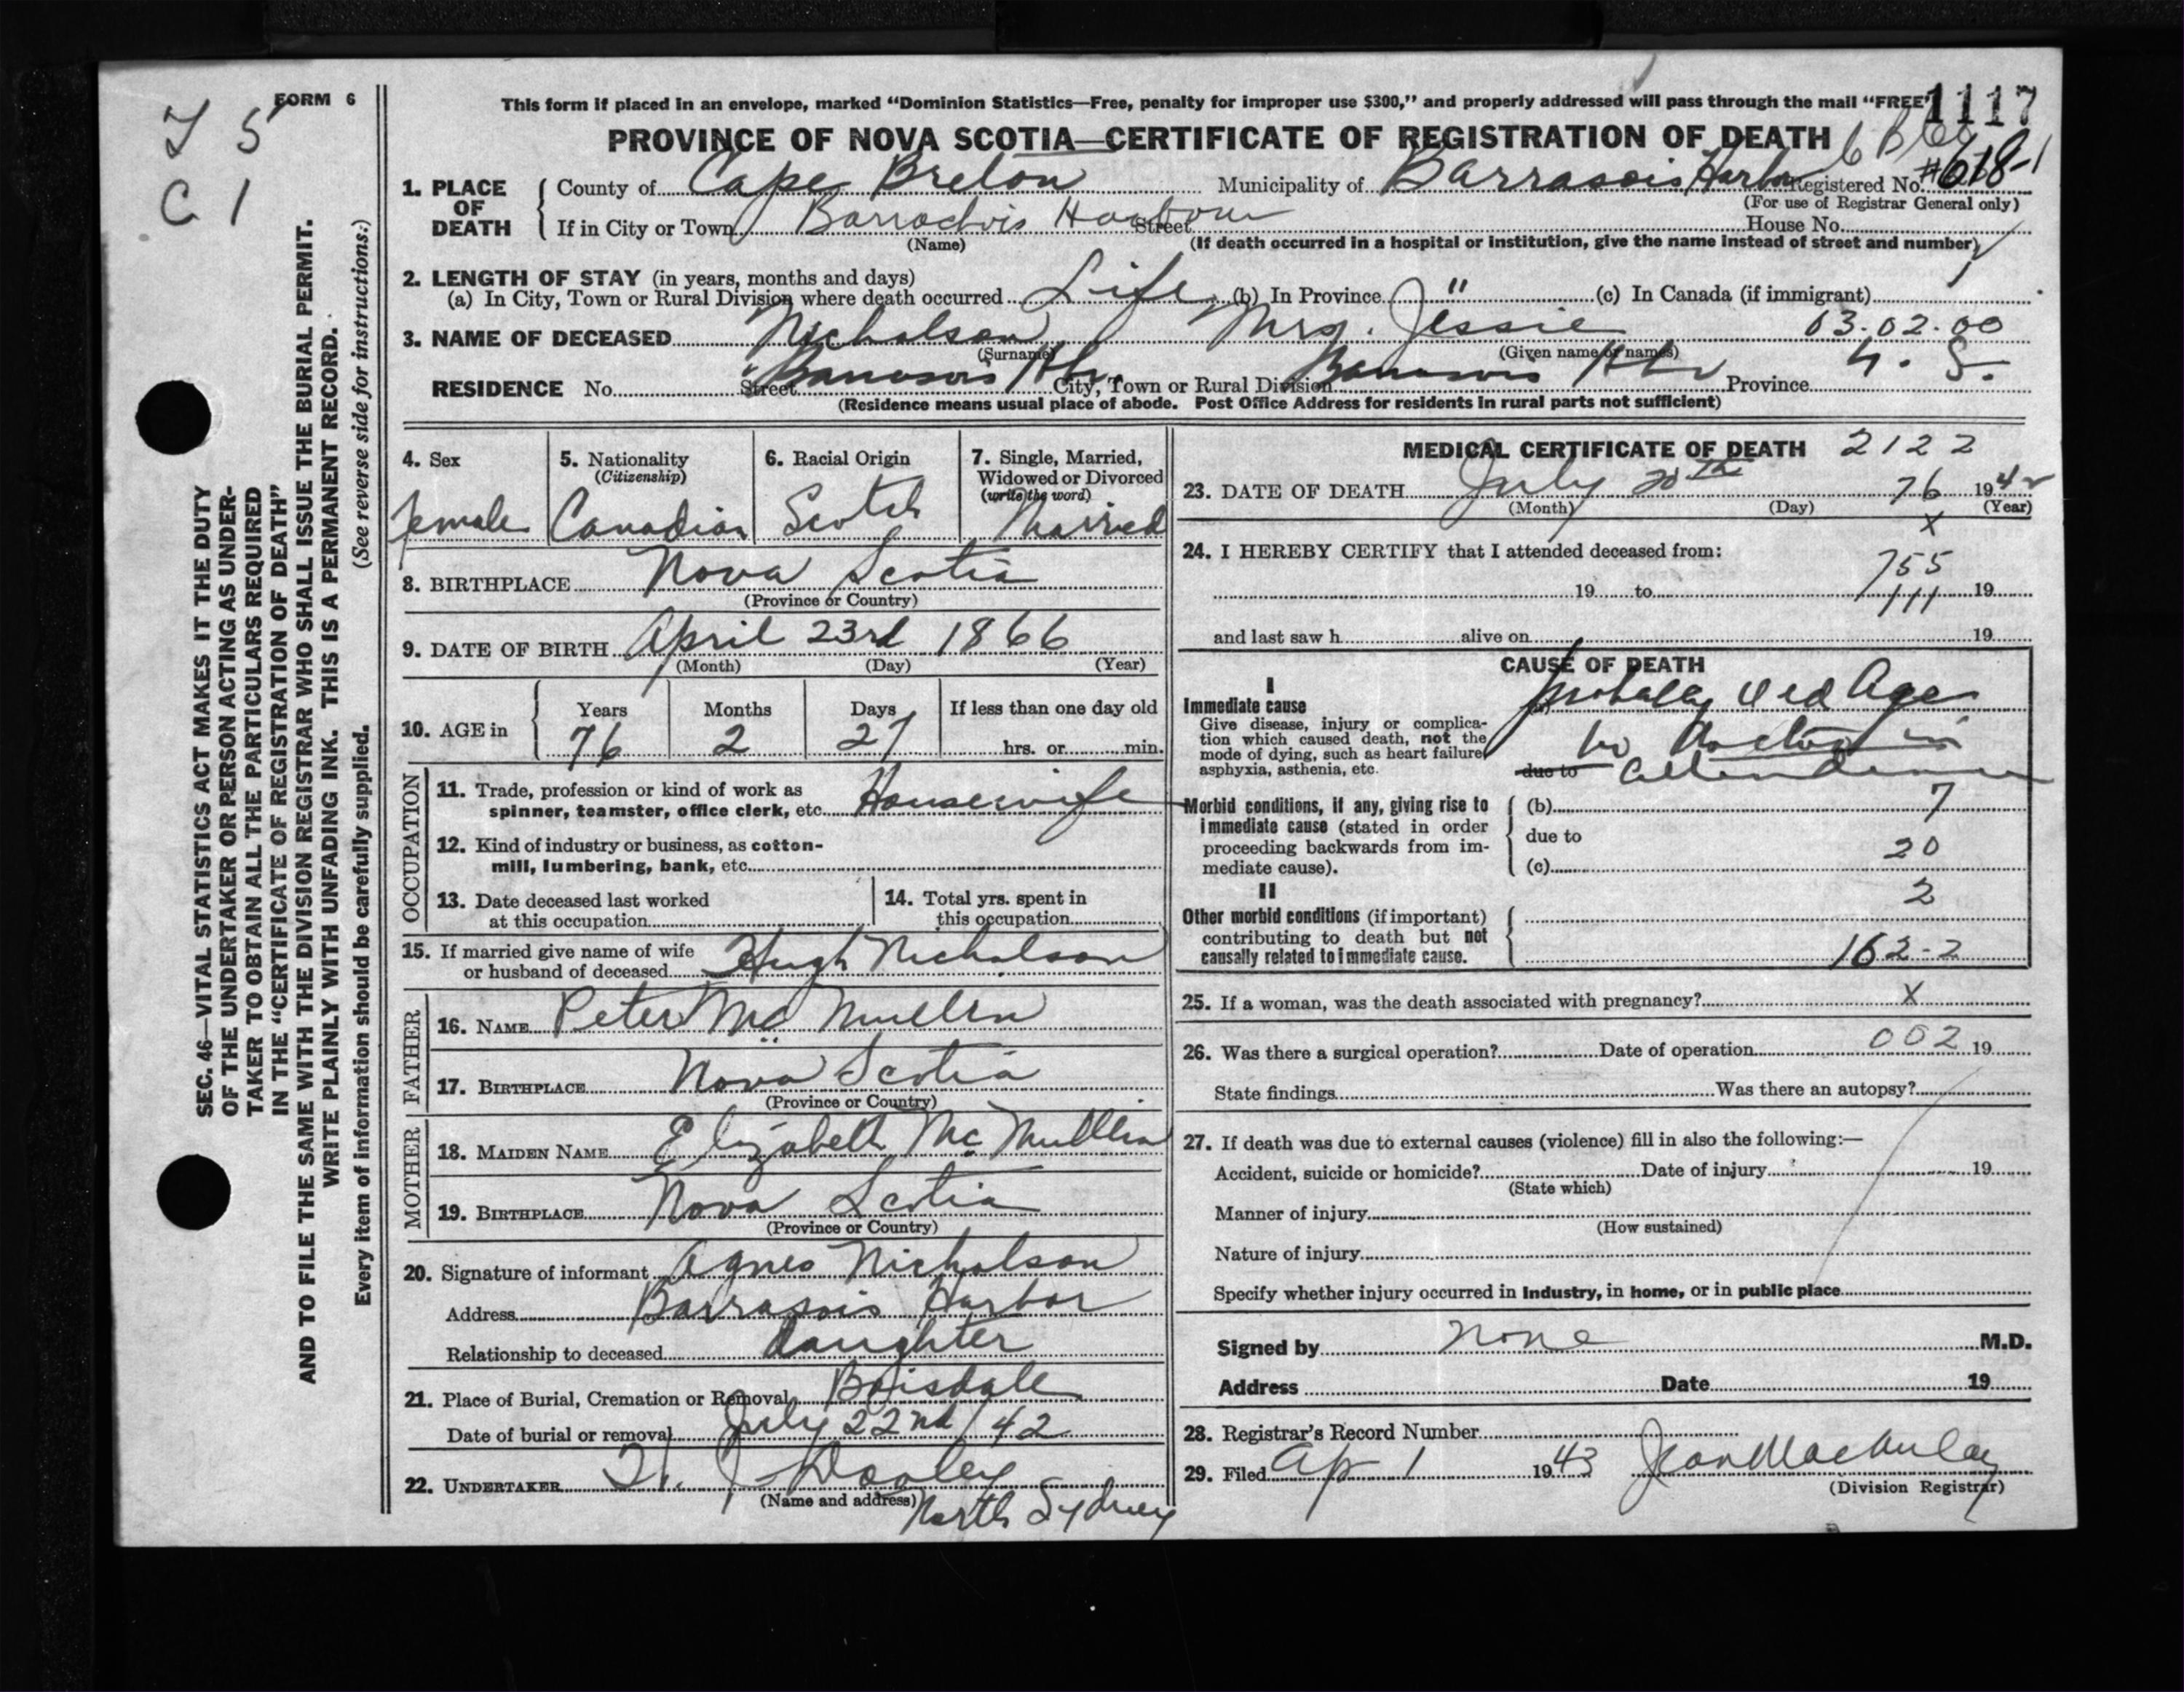 FORM 6
T 5
C 1
This form if placed in an envelope, marked “Dominion Statistics—Free, penalty for improper use $300,” and properly addressed will pass through the mail “FREE”
1117
PROVINCE OF NOVA SCOTIA—CERTIFICATE OF REGISTRATION OF DEATH
1. PLACE OF DEATH { County of Cape Breton Municipality of Barrasois Harbor Registered No. #618-1
(For use of Registrar General only)
If in City or Town Barrachois Harbour Street House No.
(Name) (If death occurred in a hospital or institution, give the name instead of street and number)
2. LENGTH OF STAY (in years, months and days)
(a) In City, Town or Rural Division where death occurred Life (b) In Province " (c) In Canada (if immigrant)
3. NAME OF DECEASED Nicholson Mrs. Jessie 03-02-00
(Surname) (Given name or names)
RESIDENCE No. Street Barrasois Hbr City, Town or Rural Division Barrasois Hbr Province N. S.
(Residence means usual place of abode. Post Office Address for residents in rural parts not sufficient)
4. Sex female
5. Nationality (Citizenship) Canadian
6. Racial Origin Scotch
7. Single, Married, Widowed or Divorced (write the word) Married
8. BIRTHPLACE Nova Scotia
(Province or Country)
9. DATE OF BIRTH April 23rd 1866
(Month) (Day) (Year)
10. AGE in { Years 76 Months 2 Days 27 If less than one day old hrs. or min.
OCCUPATION
11. Trade, profession or kind of work as
spinner, teamster, office clerk, etc. Housewife
12. Kind of industry or business, as cotton-
mill, lumbering, bank, etc.
13. Date deceased last worked
at this occupation
14. Total yrs. spent in
this occupation
15. If married give name of wife
or husband of deceased Hugh Nicholson
FATHER
16. NAME Peter Mc Mullen
17. BIRTHPLACE Nova Scotia
(Province or Country)
MOTHER
18. MAIDEN NAME Elizabeth Mc Mullin
19. BIRTHPLACE Nova Scotia
(Province or Country)
20. Signature of informant Agnes Nicholson
Address Barrasois Harbor
Relationship to deceased daughter
21. Place of Burial, Cremation or Removal Boisdale
Date of burial or removal July 22nd/42
22. UNDERTAKER J. Dooley
(Name and address) North Sydney
MEDICAL CERTIFICATE OF DEATH 2122
23. DATE OF DEATH July 20th 76 1942
(Month) (Day) (Year)
X
24. I HEREBY CERTIFY that I attended deceased from:
755
19 to 19
111
and last saw h alive on 19
CAUSE OF DEATH
I
Immediate cause
Give disease, injury or complica-
tion which caused death, not the
mode of dying, such as heart failure,
asphyxia, asthenia, etc.
(a) probably Old Age
no doctor in
due to attendance
Morbid conditions, if any, giving rise to
immediate cause (stated in order
proceeding backwards from im-
mediate cause).
(b) 7
due to
20
(c)
II
2
Other morbid conditions (if important)
contributing to death but not
causally related to immediate cause.
162-2
25. If a woman, was the death associated with pregnancy? X
26. Was there a surgical operation? Date of operation 002 19
State findings Was there an autopsy?
27. If death was due to external causes (violence) fill in also the following:—
Accident, suicide or homicide? Date of injury 19
(State which)
Manner of injury
(How sustained)
Nature of injury
Specify whether injury occurred in Industry, in home, or in public place
Signed by none M.D.
Address Date 19
28. Registrar's Record Number
29. Filed Ap 1 1943 Jean MacAulay
(Division Registrar)
SEC. 46—VITAL STATISTICS ACT MAKES IT THE DUTY
OF THE UNDERTAKER OR PERSON ACTING AS UNDER-
TAKER TO OBTAIN ALL THE PARTICULARS REQUIRED
IN THE “CERTIFICATE OF REGISTRATION OF DEATH”
AND TO FILE THE SAME WITH THE DIVISION REGISTRAR WHO SHALL ISSUE THE BURIAL PERMIT.
WRITE PLAINLY WITH UNFADING INK. THIS IS A PERMANENT RECORD.
Every item of information should be carefully supplied. (See reverse side for instructions.)